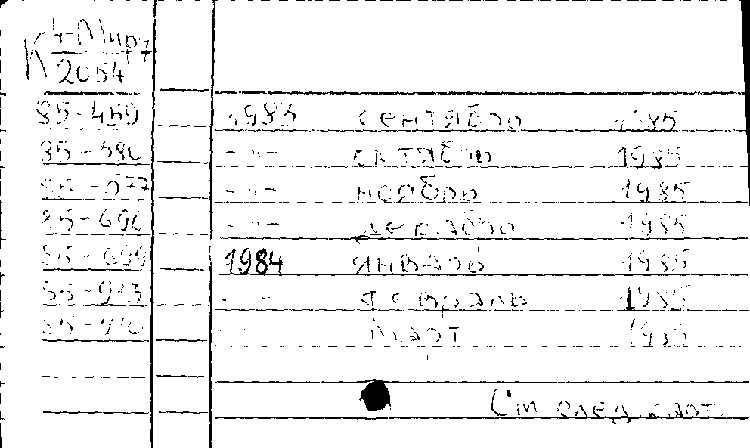 К 4-Мир7
2054
85-459 1983 сентябрь 1985
85-586 -"- октябрь 1985
85-577 -"- ноябрь 1985
85-696 -"- декабрь 1985
85-699 1984 январь 1985
85-913 -"- февраль 1985
март 1985
См след. карт.